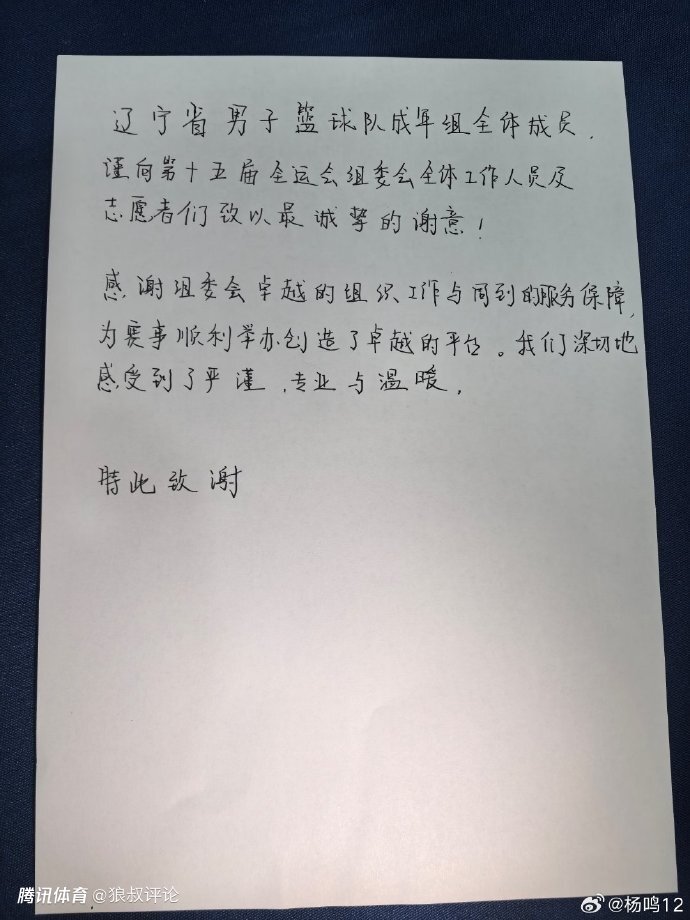 辽宁省男子篮球队成年组全体成员，
谨向第十五届全运会组委会全体工作人员及
志愿者们致以最诚挚的谢意！
感谢组委会卓越的组织工作与周到的服务保障，
为赛事顺利举办创造了卓越的平台。我们深切地
感受到了严谨、专业与温暖。
特此致谢
腾讯体育 @狼叔评论
@杨鸣12